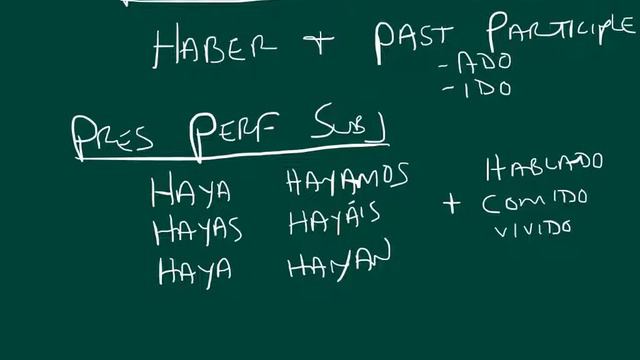 HABER + PAST PARTICIPLE
- ADO
- IDO
PRES PERF SUBJ
HAYA HAYAMOS
HAYAS HAYÁIS
HAYA HAYAN
+ HABLADO
COMIDO
VIVIDO